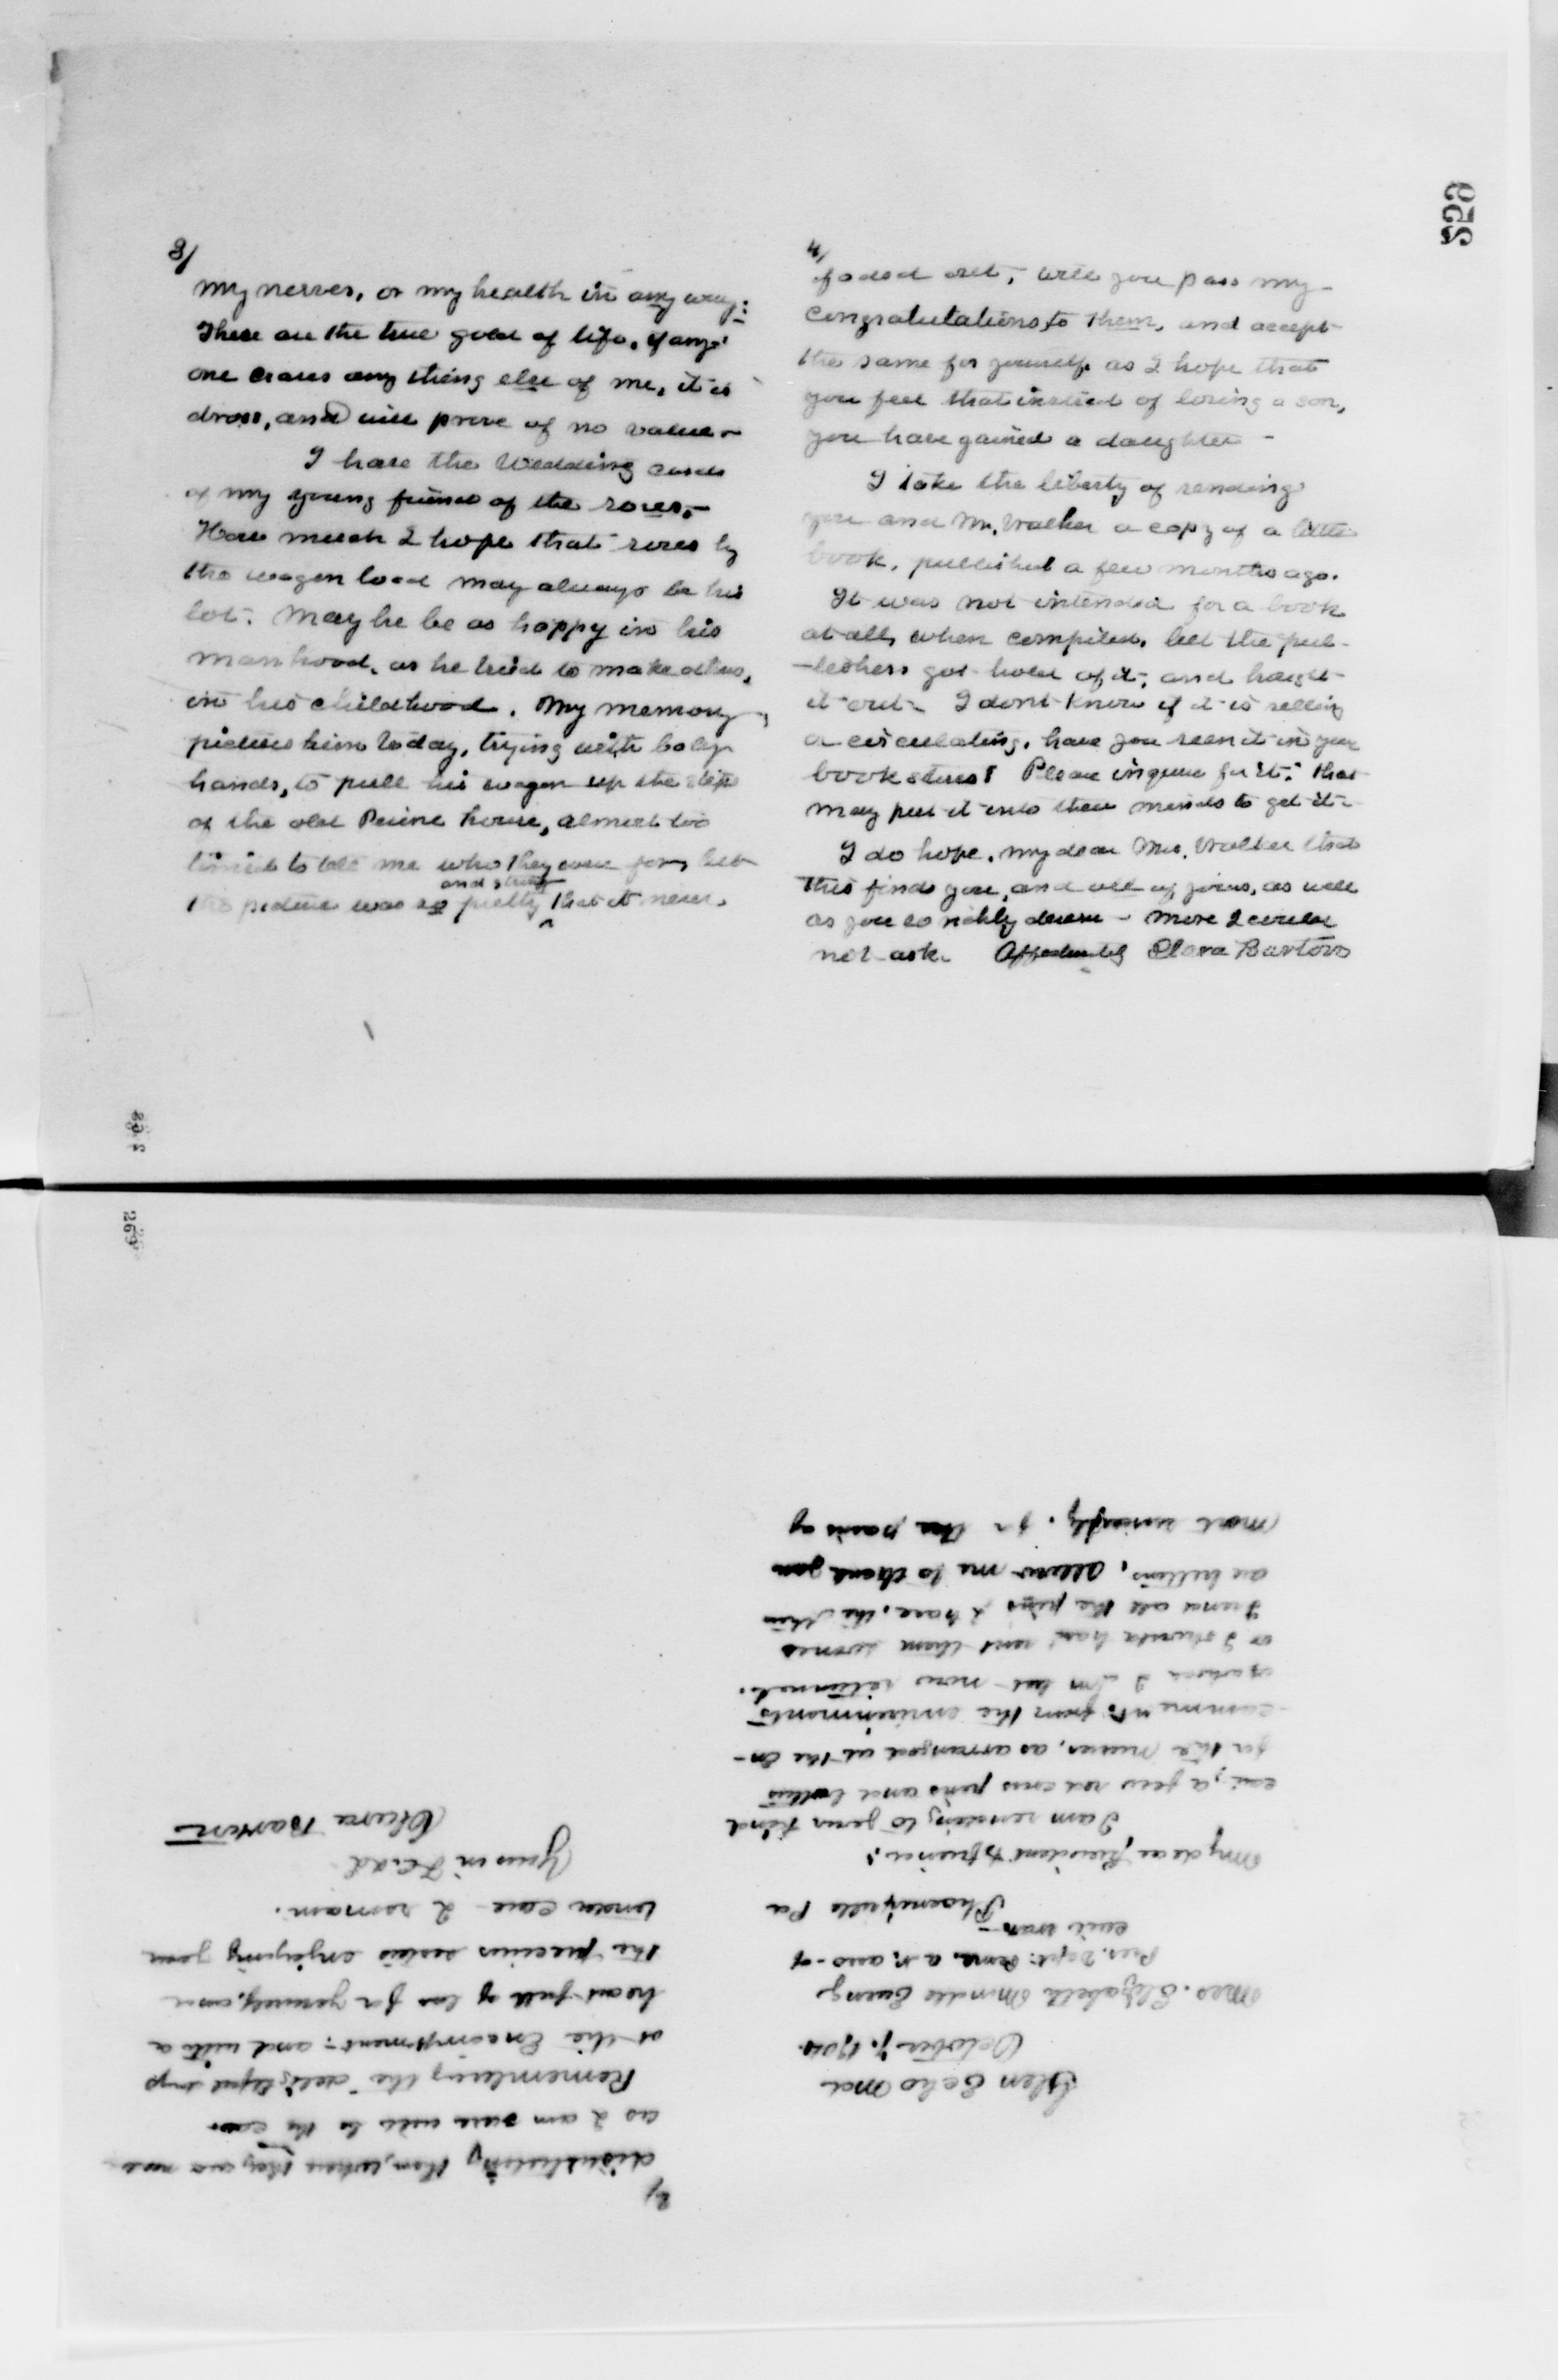 259
3/
my nerves, or my health in any way:
These are the true gold of life, if any
one craves any thing else of me, it is
dross, and will prove of no value -
I have the Wedding cards
of my young friend of the roses.-
How much I hope that roses by
the wagon load may always be his
lot. May he be as happy in his
manhood, as he tried to make others,
in his childhood. My memory
pictures him today, trying with baby
hands, to pull his wagon up the steps
of the old Peirie house, almost too
timid to tell me who they were for, but
the picture was so pretty and that it never
4/
faded out, will you pass my
congratulations to them, and accept
the same for yourself, as I hope that
you feel that instead of losing a son,
you have gained a daughter -
I take the liberty of sending
you and Mr. Walker a copy of a little
book, published a few months ago.
It was not intended for a book
at all, when compiled, but the pub-
-lishers got hold of it, and
it out - I dont know if it is selling
or circulating, have you seen it in your
book stores? Please inquire for it: that
may put it into their minds to get it -
I do hope, my dear Mrs. Walker that
this finds you, and all of yours, as well
as you so richly deserve - more I could
not ask. Affectionately Clara Barton
269
Glen Echo Md
October 7, 1904.
Mrs. Elizabeth Mundle Ewing
Pres. Dept. Penna. a n ass of
civil war -
Phoenixville Pa
My dear President & friend:
I am sending to your kind
care, a few red cross pins and buttons
for the nurses, as arranged at the En-
-campment, from the environments
of which I am but now returned.
or I should have sent them sooner
I send all the pins I have, the
are buttons, Allow me to thank you
most sincerely, for the pains of
2/
distributing them, where they are not
as I am sure will be the case.
Remembering the delightful
at the Encampment: and with a
heart full of love for yourself, and
the precious sisters enjoying your
tender care I remain.
Yours in
Clara Barton